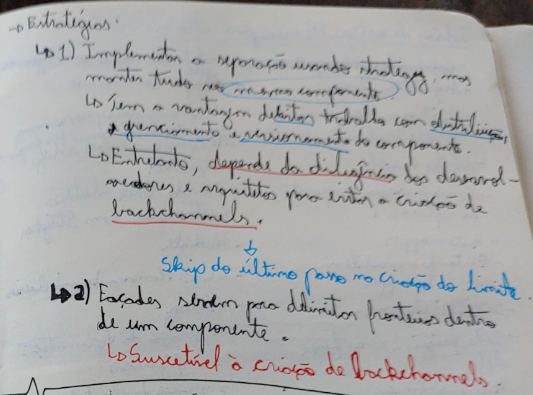 → Estratégias:
↳ 1) Implementar a separação usando strategy, mas
manter tudo no mesmo componente.
↳ Tem a vantagem de evitar trabalho com distribuição,
gerenciamento e versionamento do componente.
↳ Entretanto, depende da diligência dos desenvol-
vedores e arquitetos para evitar a criação de
backchannels.
↓
Skip do último passo na criação do limite.
↳ 2) Façades servem para delimitar fronteiras dentro
de um componente.
↳ Suscetível à criação de backchannels.